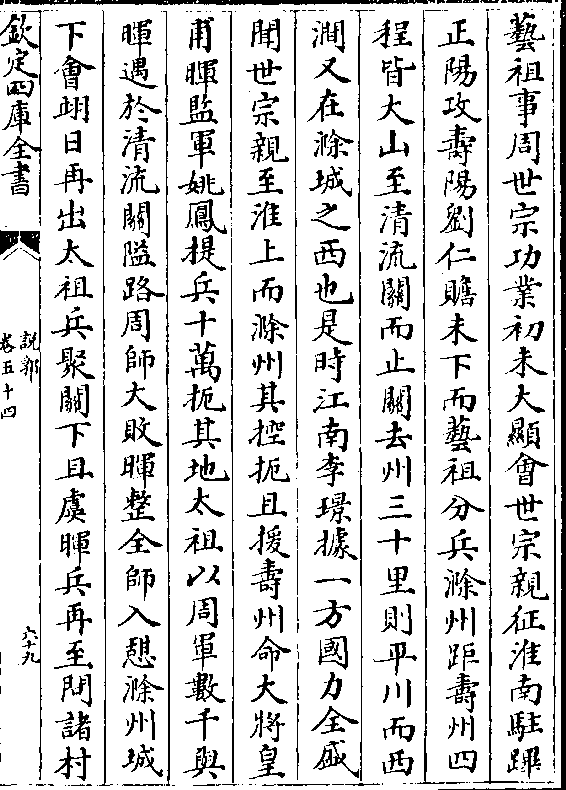 藝祖事周世宗功業初未大顯會世宗親征淮南駐蹕
正陽攻壽陽劉仁贍未下而藝祖分兵滁州距壽州四
程皆大山至清流關而止關去州三十里則平川而西
澗又在滁城之西也是時江南李璟據一方國力全盛
聞世宗親至淮上而滁州其控扼且援壽州命大將皇
甫暉監軍姚鳳提兵十萬扼其地太祖以周軍數千與
暉遇於清流關隘路周師大敗暉整全師入憩滁州城
下會翊日再出太祖兵聚關下且虞暉兵再至問諸村
欽定四庫全書
說郛
卷五十四
六十九